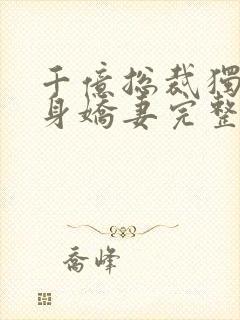 千億總裁獨
身嬌妻完整
喬峰